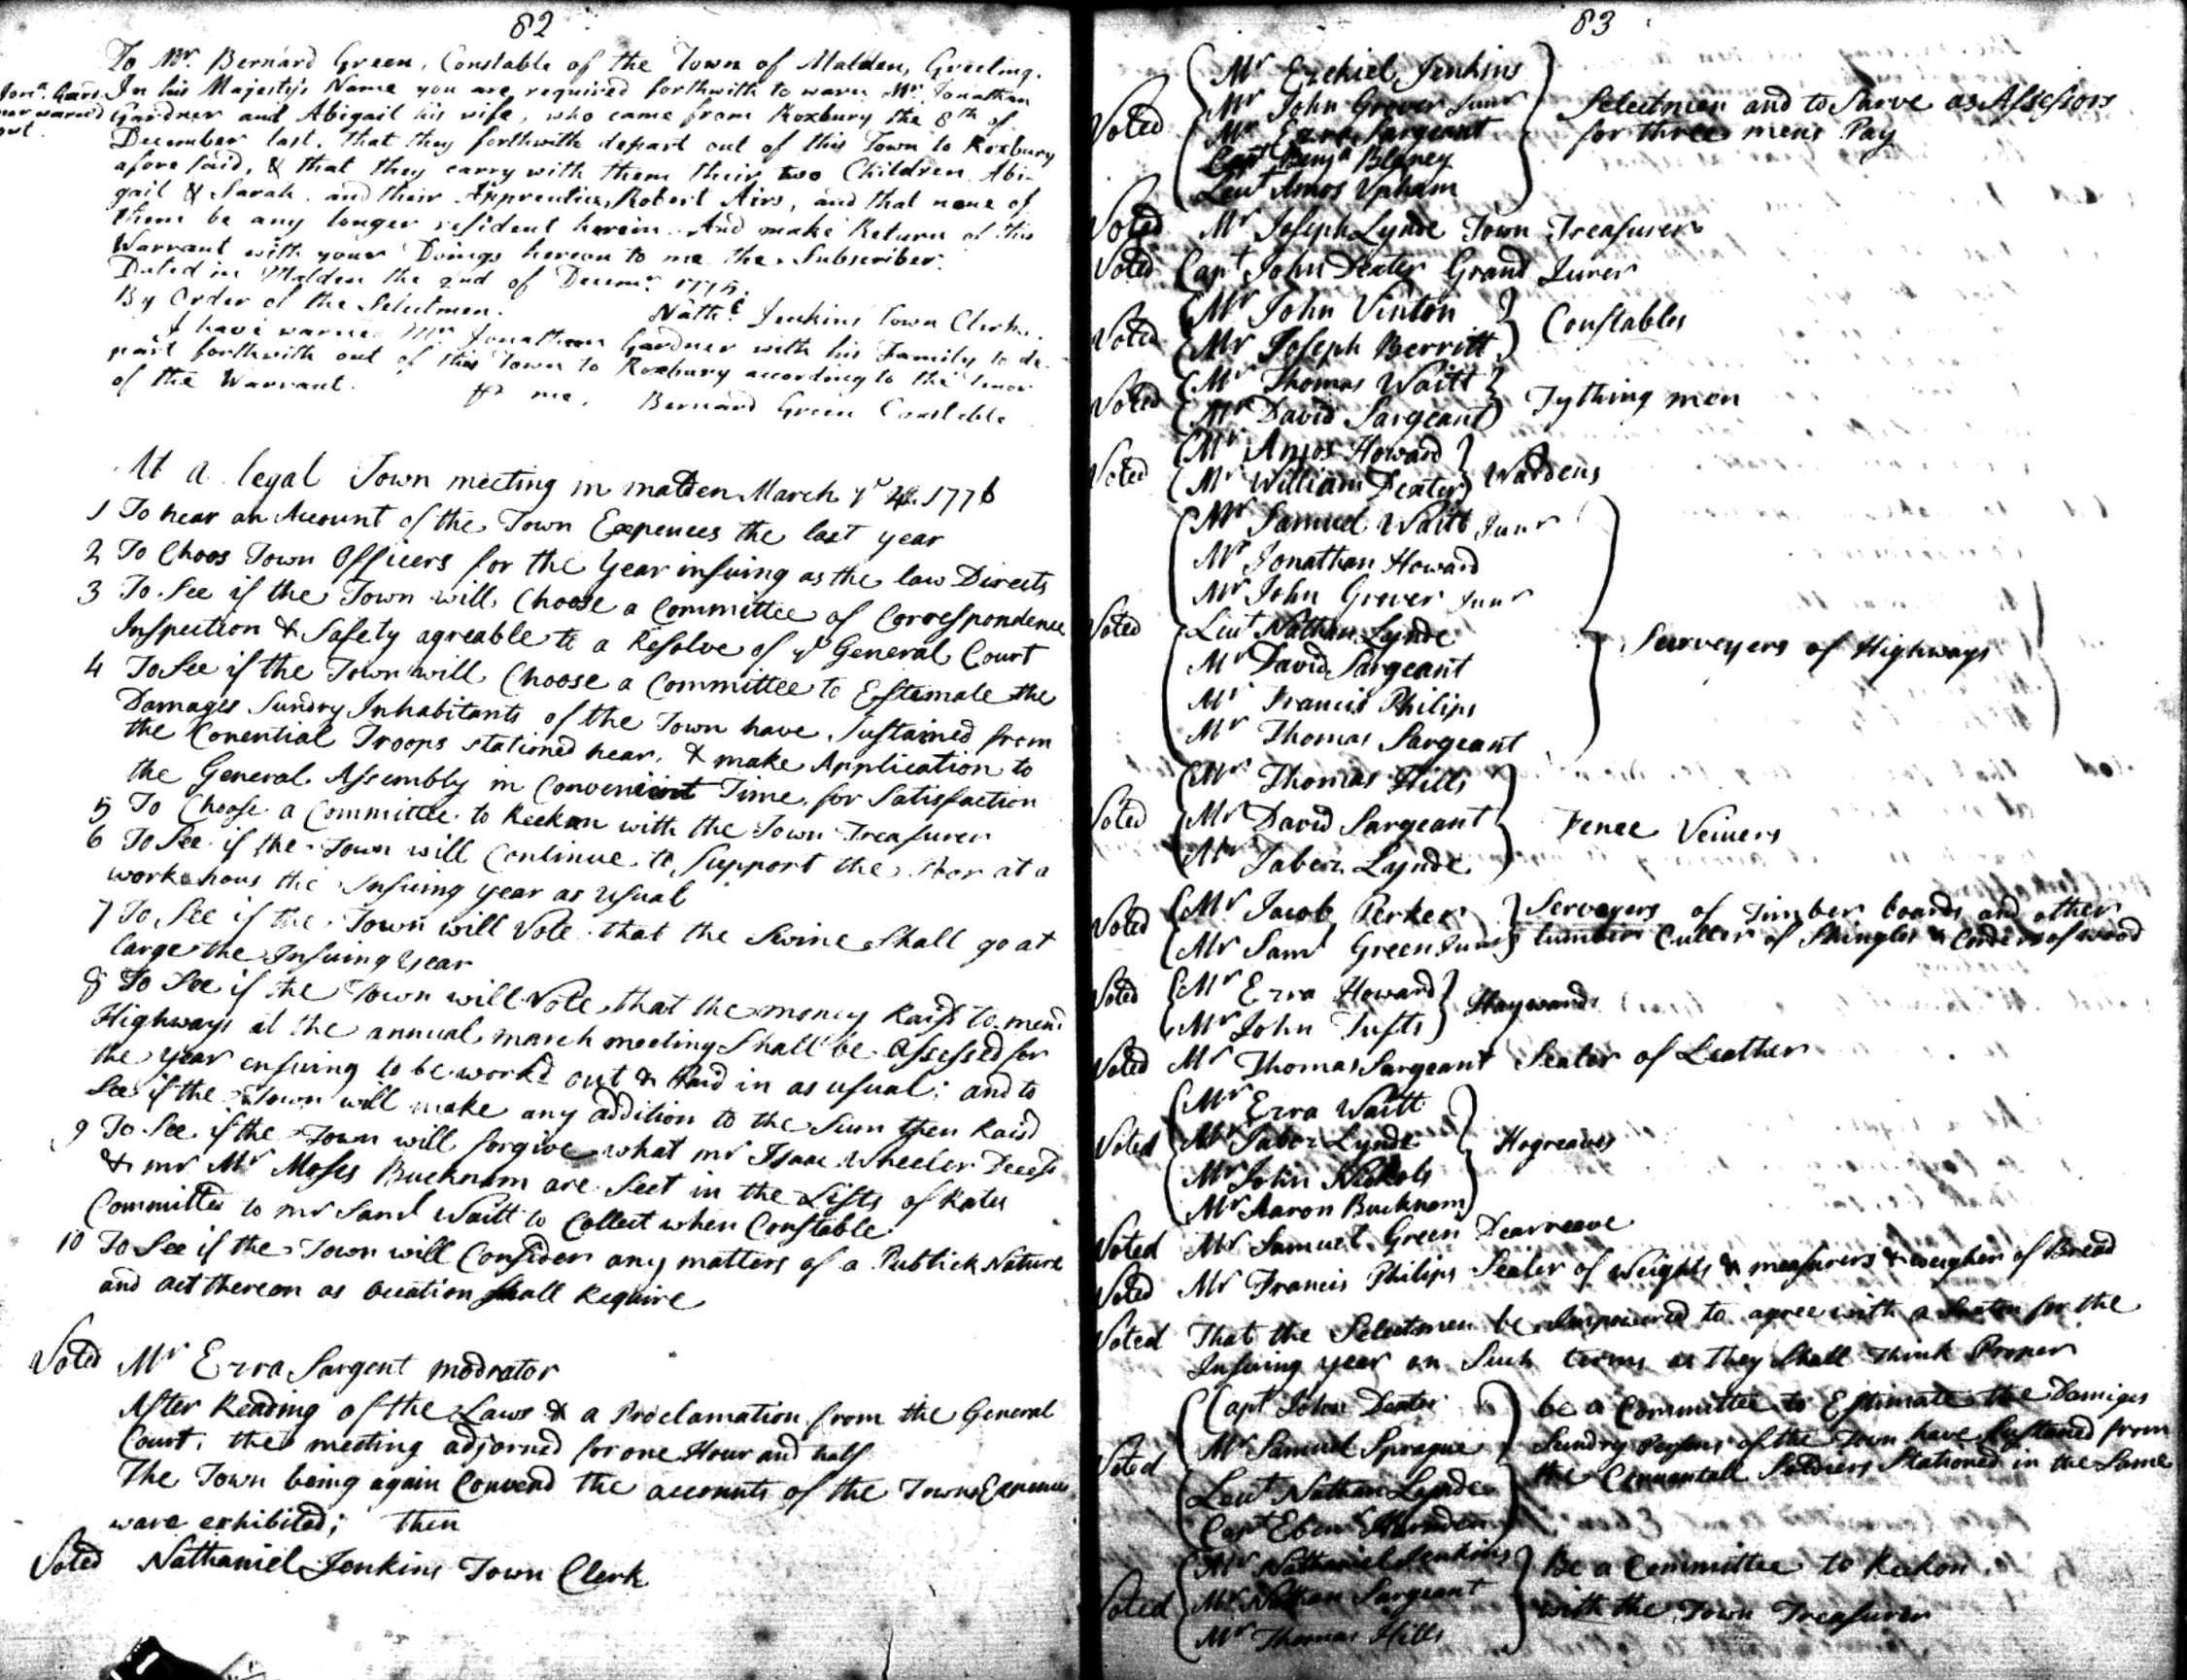 82
To Mr. Bernard Green, Constable of the Town of Malden, Greeting.
Jona. Gard
ner warned
out
In his Majesty's Name you are required forthwith to warn Mr. Jonathan
Gardner and Abigail his wife, who came from Roxbury the 8th of
December last, that they forthwith depart out of this Town to Roxbury
aforesaid, & that they carry with them their two Children Abi-
gail & Sarah, and their Apprentice, Robert Airs, and that none of
them be any longer resident herein. And make Return of this
Warrant with your Doings hereon to me the Subscriber.
Dated in Malden the 2nd of Decemr.
By Order of the Selectmen. Nathl. Jenkins Town Clerk.
I have warned Mr. Jonathan Gardner with his Family to de-
part forthwith out of this Town to Roxbury according to the tenor
of the Warrant. me, Bernard Green Constable
At a legal Town meeting in malden March ye 4 1776
1 To hear an Account of the Town Expences the last year
2 To Choos Town Officers for the Year insuing as the law Directs
3 To See if the Town will Choose a Committee of Correspondence
Inspection & Safety agreable to a Resolve of ye General Court
4 To See if the Town will Choose a Committee to Estemate the
Damages Sundry Inhabitants of the Town have Sustained from
the Conential Troops stationed hear, & make Application to
the General Assembly in Convenient Time for Satisfaction
5 To Choose a Committee to Reckon with the Town Treasurer
6 To See if the Town will Continue to Support the Poor at a
workhous the Insuing year as usual
7 To See if the Town will Vote that the Swine Shall go at
large the Insuing Year
8 To See if the Town will Vote that the money Raisd to mend
Highways at the annual march meeting Shall be assessed for
the year ensuing to be workd out & Paid in as usual; and to
See if the Town will make any addition to the Sum then Raisd
9 To See if the Town will forgive what mr Isaac Wheeler Decesd
& mr Mr Moses Bucknam are Sett in the Lists of Rates
Committed to mr Saml Waitt to Collect when Constable
10 To See if the Town will Consider any matters of a Publick Nature
and act thereon as Ocation Shall Require
Voted Mr Ezra Sargent modrator
After Reading of the Laws & a Proclamation from the General
Court, the meeting adjorned for one Hour and half
The Town being again Convend the accounts of the Towns Expences
ware exhibited; then
Voted Nathaniel Jenkins Town Clerk
83
Mr Ezekiel Jenkins
Mr John Grover Junr
Voted Mr Ezra Sargeant Selectmen and to Sarve as Assessors
Capt Benja Blaney for three mens Pay
Leut Amos Upham
Voted Mr Joseph Lynde Town Treasurer
Voted Capt John Dexter Grand Jurer
Mr John Vinton
Voted Mr Joseph Berritt Constables
Mr Thomas Waitt
Voted Mr David Sargeant Tything men
Mr Amos Howard
Voted Mr William Dexter Wardens
Mr Samuel Waitt Junr
Mr Jonathan Howard
Mr John Grover Junr
Voted Leut Nathan Lynde Surveyers of Highways
Mr David Sargeant
Mr Francis Philips
Mr Thomas Sargeant
Mr Thomas Hills
Voted Mr David Sargeant Fence Veiuers
Mr Jabez Lynde
Voted Mr Jacob Perker Servayers of Timber boards and other
Mr Saml Green Junr lumber Culler of Shingles & Corders of wood
Voted Mr Ezra Howard Haywards
Mr John Tufts
Voted Mr Thomas Sargeant Sealer of Leather
Mr Ezra Waitt
Voted Mr Jabez Lynde Hogreaves
Mr John Nickols
Mr Aaron Bucknam
Voted Mr Samuel Green Dearreave
Voted Mr Francis Philips Sealer of Weights & measurers & weigher of Bread
Voted That the Selectmen be Impowered to agree with a for the
Insuing year on Such terms as they Shall think Proper
Capt John Dexter be a Committee to Estimate the Damiges
Mr Samuel Sprague Sundry Persons of the Town have Sustained from
Voted Leut Nathan Lynde the Soldiers Stationed in the Same
Capt Eben Harnden
Mr Nathaniel Jenkins Be a Committee to Reckon
Voted Mr Nathan Sargeant with the Town Treasurer
Mr Thomas Hills